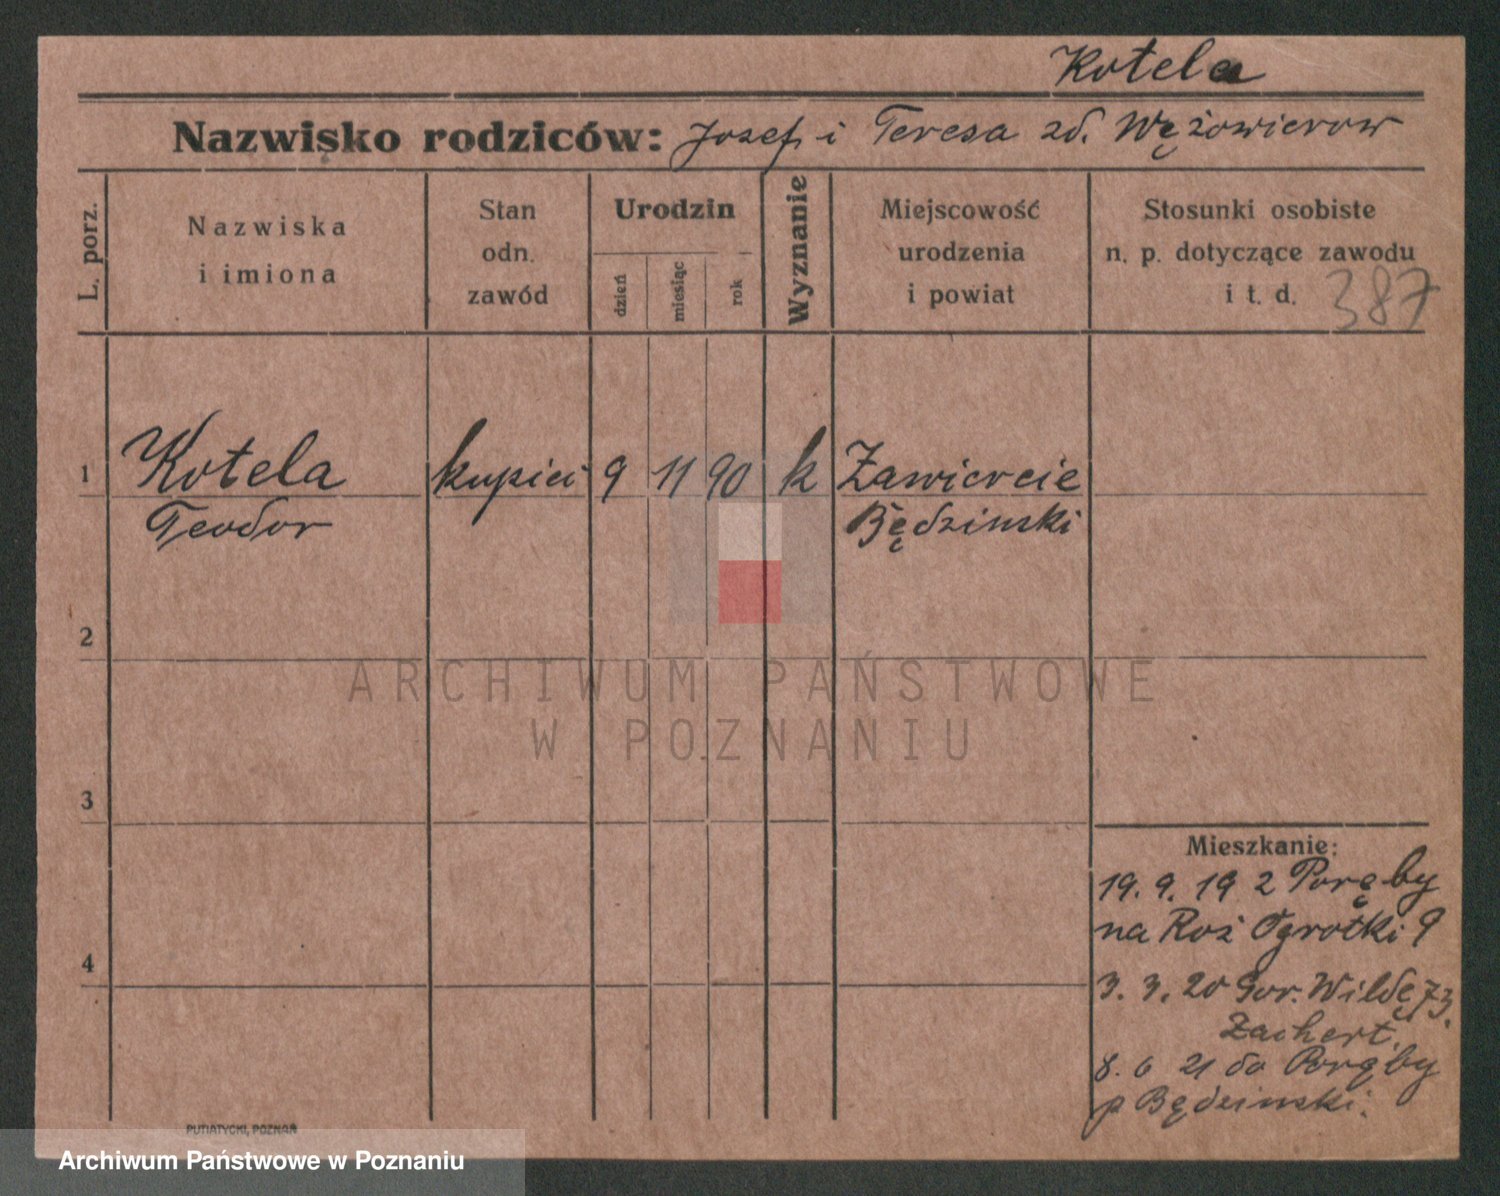 Kotela
Nazwisko rodziców: Josef i Teresa zd. Wężowierow
L. porz.
Nazwiska
i imiona
Stan
odn.
zawód
Urodzin
dzień
miesiąc
rok
Wyznanie
Miejscowość
urodzenia
i powiat
Stosunki osobiste
n. p. dotyczące zawodu
i t. d.
387
1 Kotela kupiec 9 11 90 k Zawiercie
Teodor Będzinski
2
ARCHIWUM PAŃSTWOWE
W POZNANIU
3
Mieszkanie:
19. 9. 19 z Poręby
na Roź Ogrotki 9
4
3. 3. 20 Gor. Wildę 73.
Zachert.
8. 6 21 do Poręby
p Będzinski.
PUTIATYCKI, POZNAŃ
Archiwum Państwowe w Poznaniu